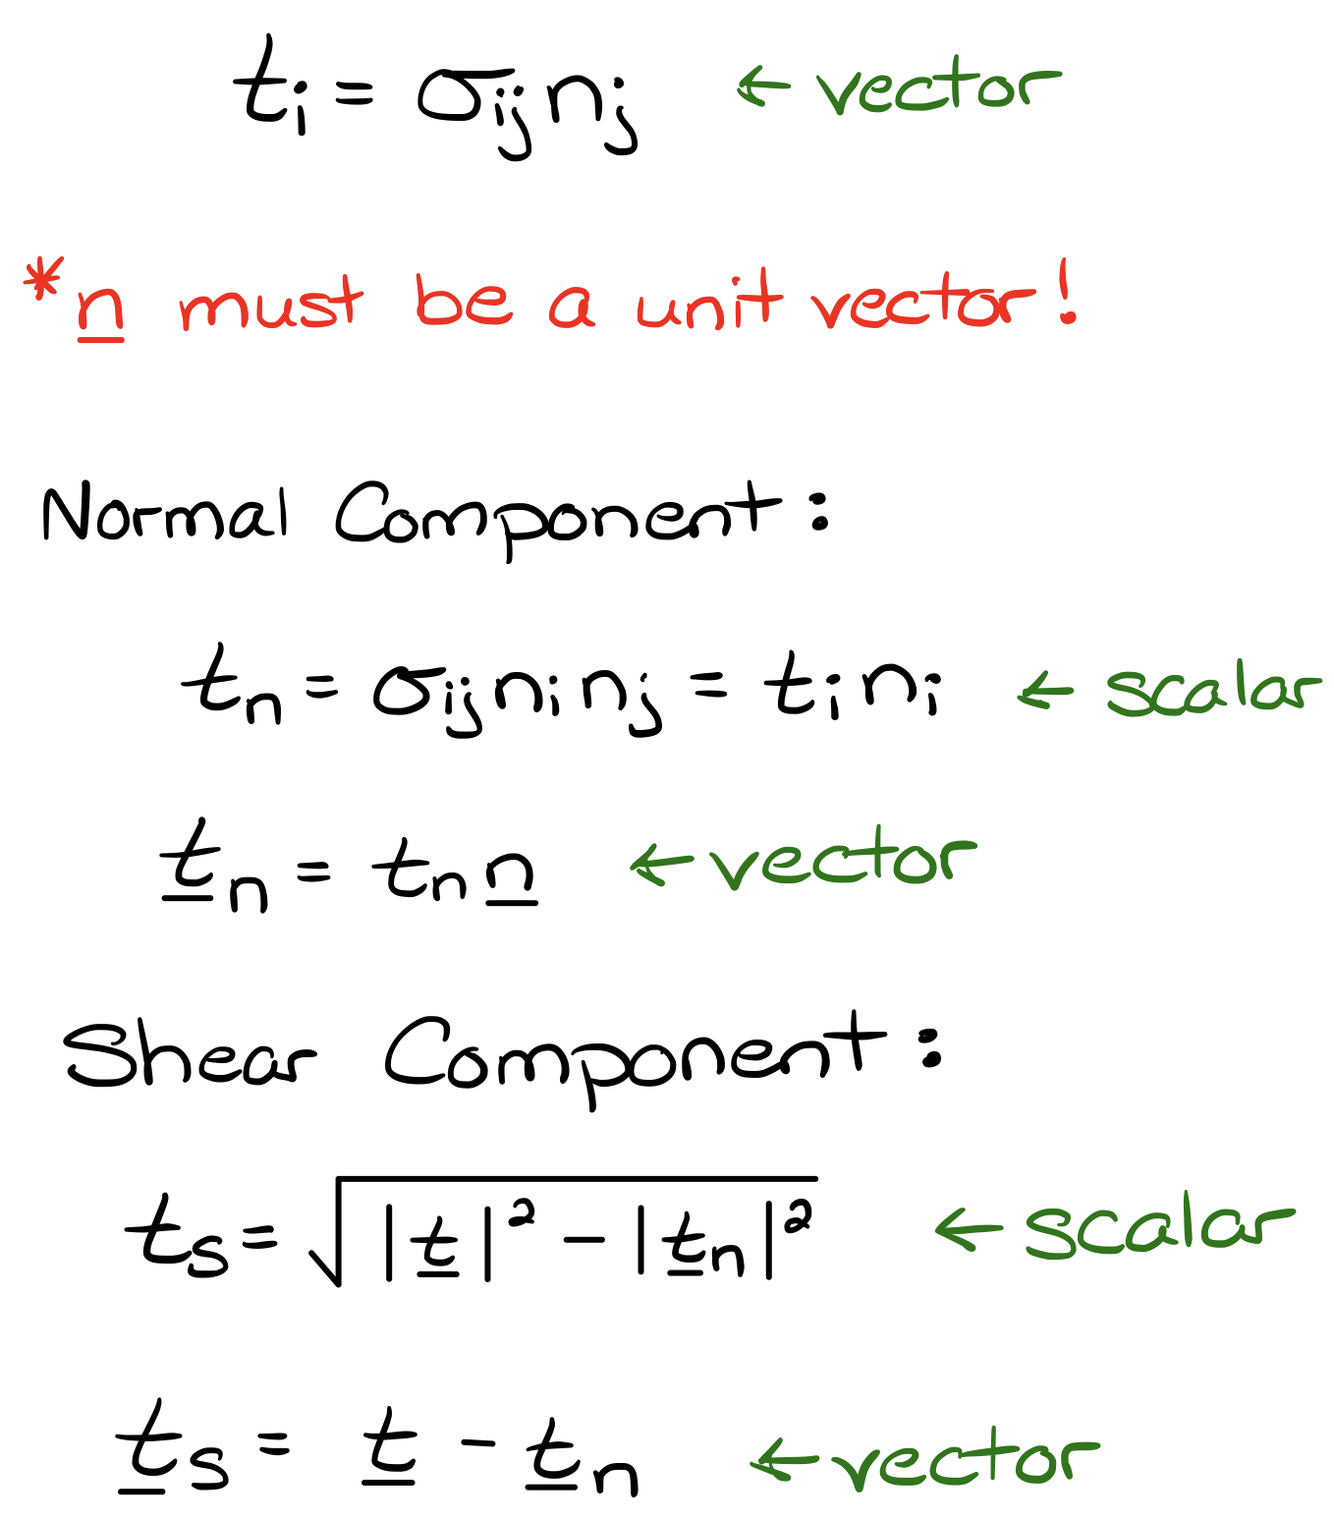 tᵢ = σᵢⱼnⱼ ← vector
*n̲ must be a unit vector!
Normal Component:
tₙ = σᵢⱼnᵢnⱼ = tᵢnᵢ ← scalar
t̲ₙ = tₙn̲ ← vector
Shear Component:
tₛ = √(|t̲|² - |t̲ₙ|²) ← scalar
t̲ₛ = t̲ - t̲ₙ ← vector